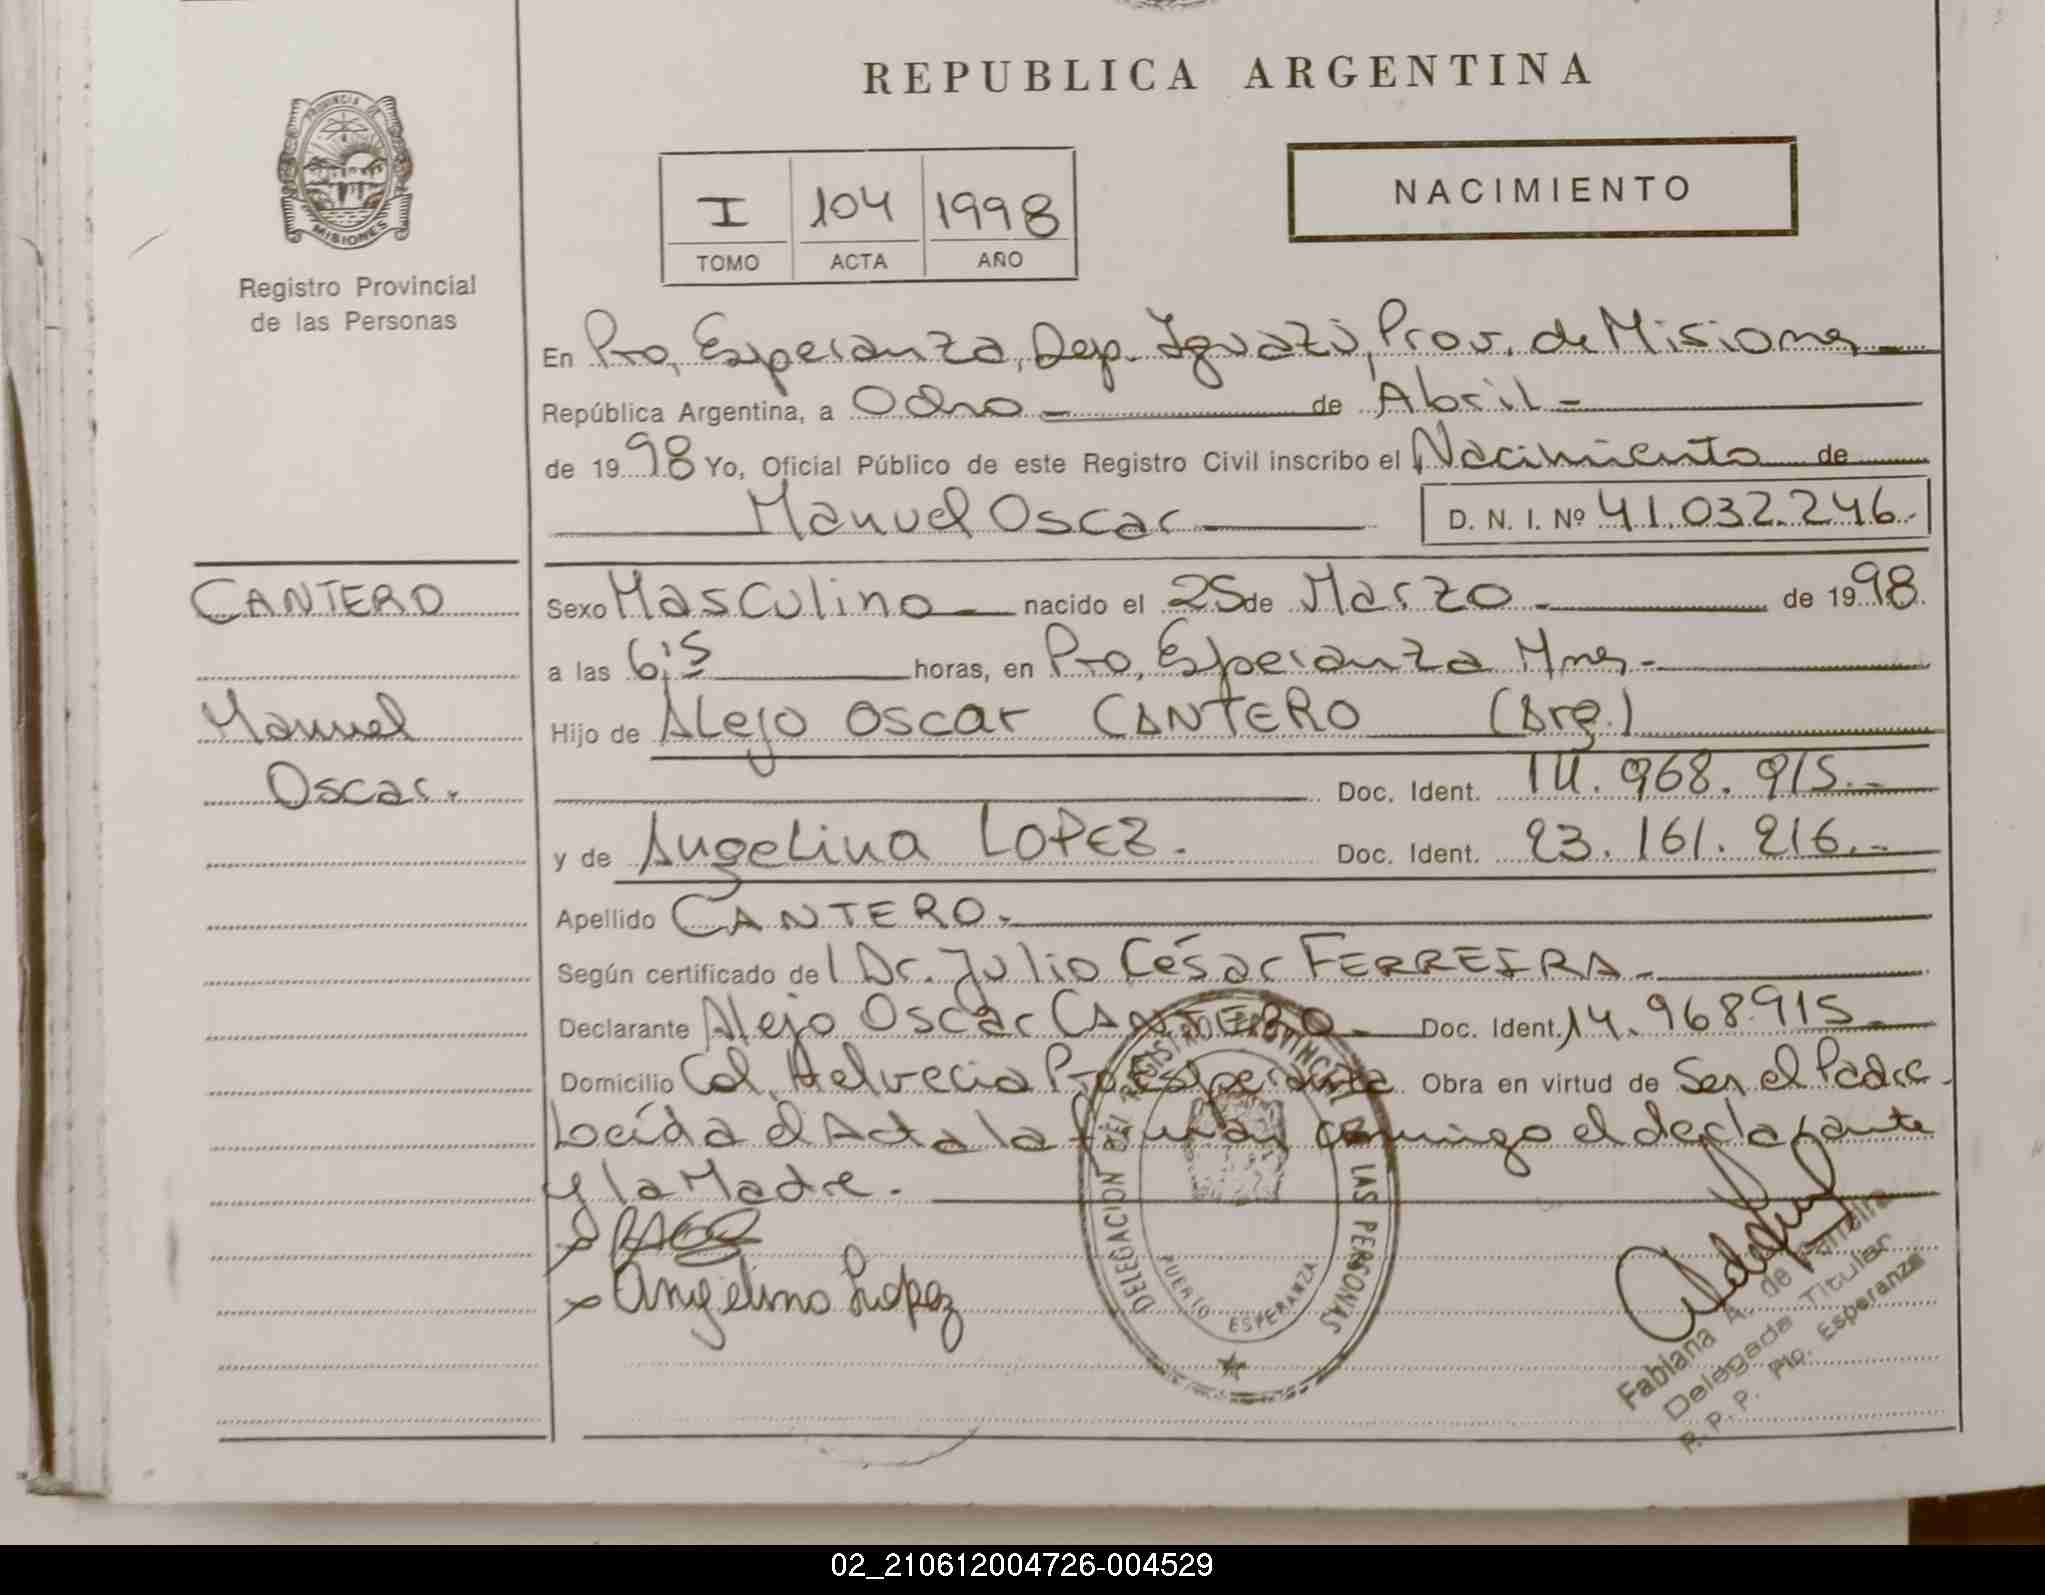 REPUBLICA ARGENTINA
PROVINCIA DE MISIONES
Registro Provincial
de las Personas
I 104 1998
TOMO ACTA AÑO
NACIMIENTO
En Pto. Esperanza, Dep. Iguazú, Prov. de Misiones
República Argentina, a Ocho de Abril
de 1998 Yo, Oficial Público de este Registro Civil inscribo el Nacimiento de
Manuel Oscar D. N. I. Nº 41.032.246.
CANTERO
Manuel
Oscar.
Sexo Masculino nacido el 25 de Marzo de 1998.
a las 6:5 horas, en Pto. Esperanza Mnes.
Hijo de Alejo Oscar CANTERO (Arg.)
Doc. Ident. 14.968.915.-
y de Angelina LOPEZ. Doc. Ident. 23.161.216.-
Apellido CANTERO.
Según certificado del Dr. Julio César FERREIRA
Declarante Alejo Oscar CANTERO Doc. Ident. 14.968.915
Domicilio Col. Helvecia Pto Esperanza Obra en virtud de Ser el Padre
Leída el Acta la firman conmigo el declarante
y la Madre.
Angelina Lopez
DELEGACION DEL REGISTRO PROVINCIAL DE LAS PERSONAS
PUERTO ESPERANZA
Fabiana A. de Ferreira
Delegada Titular
R. P. P. Pto. Esperanza
02_210612004726-004529